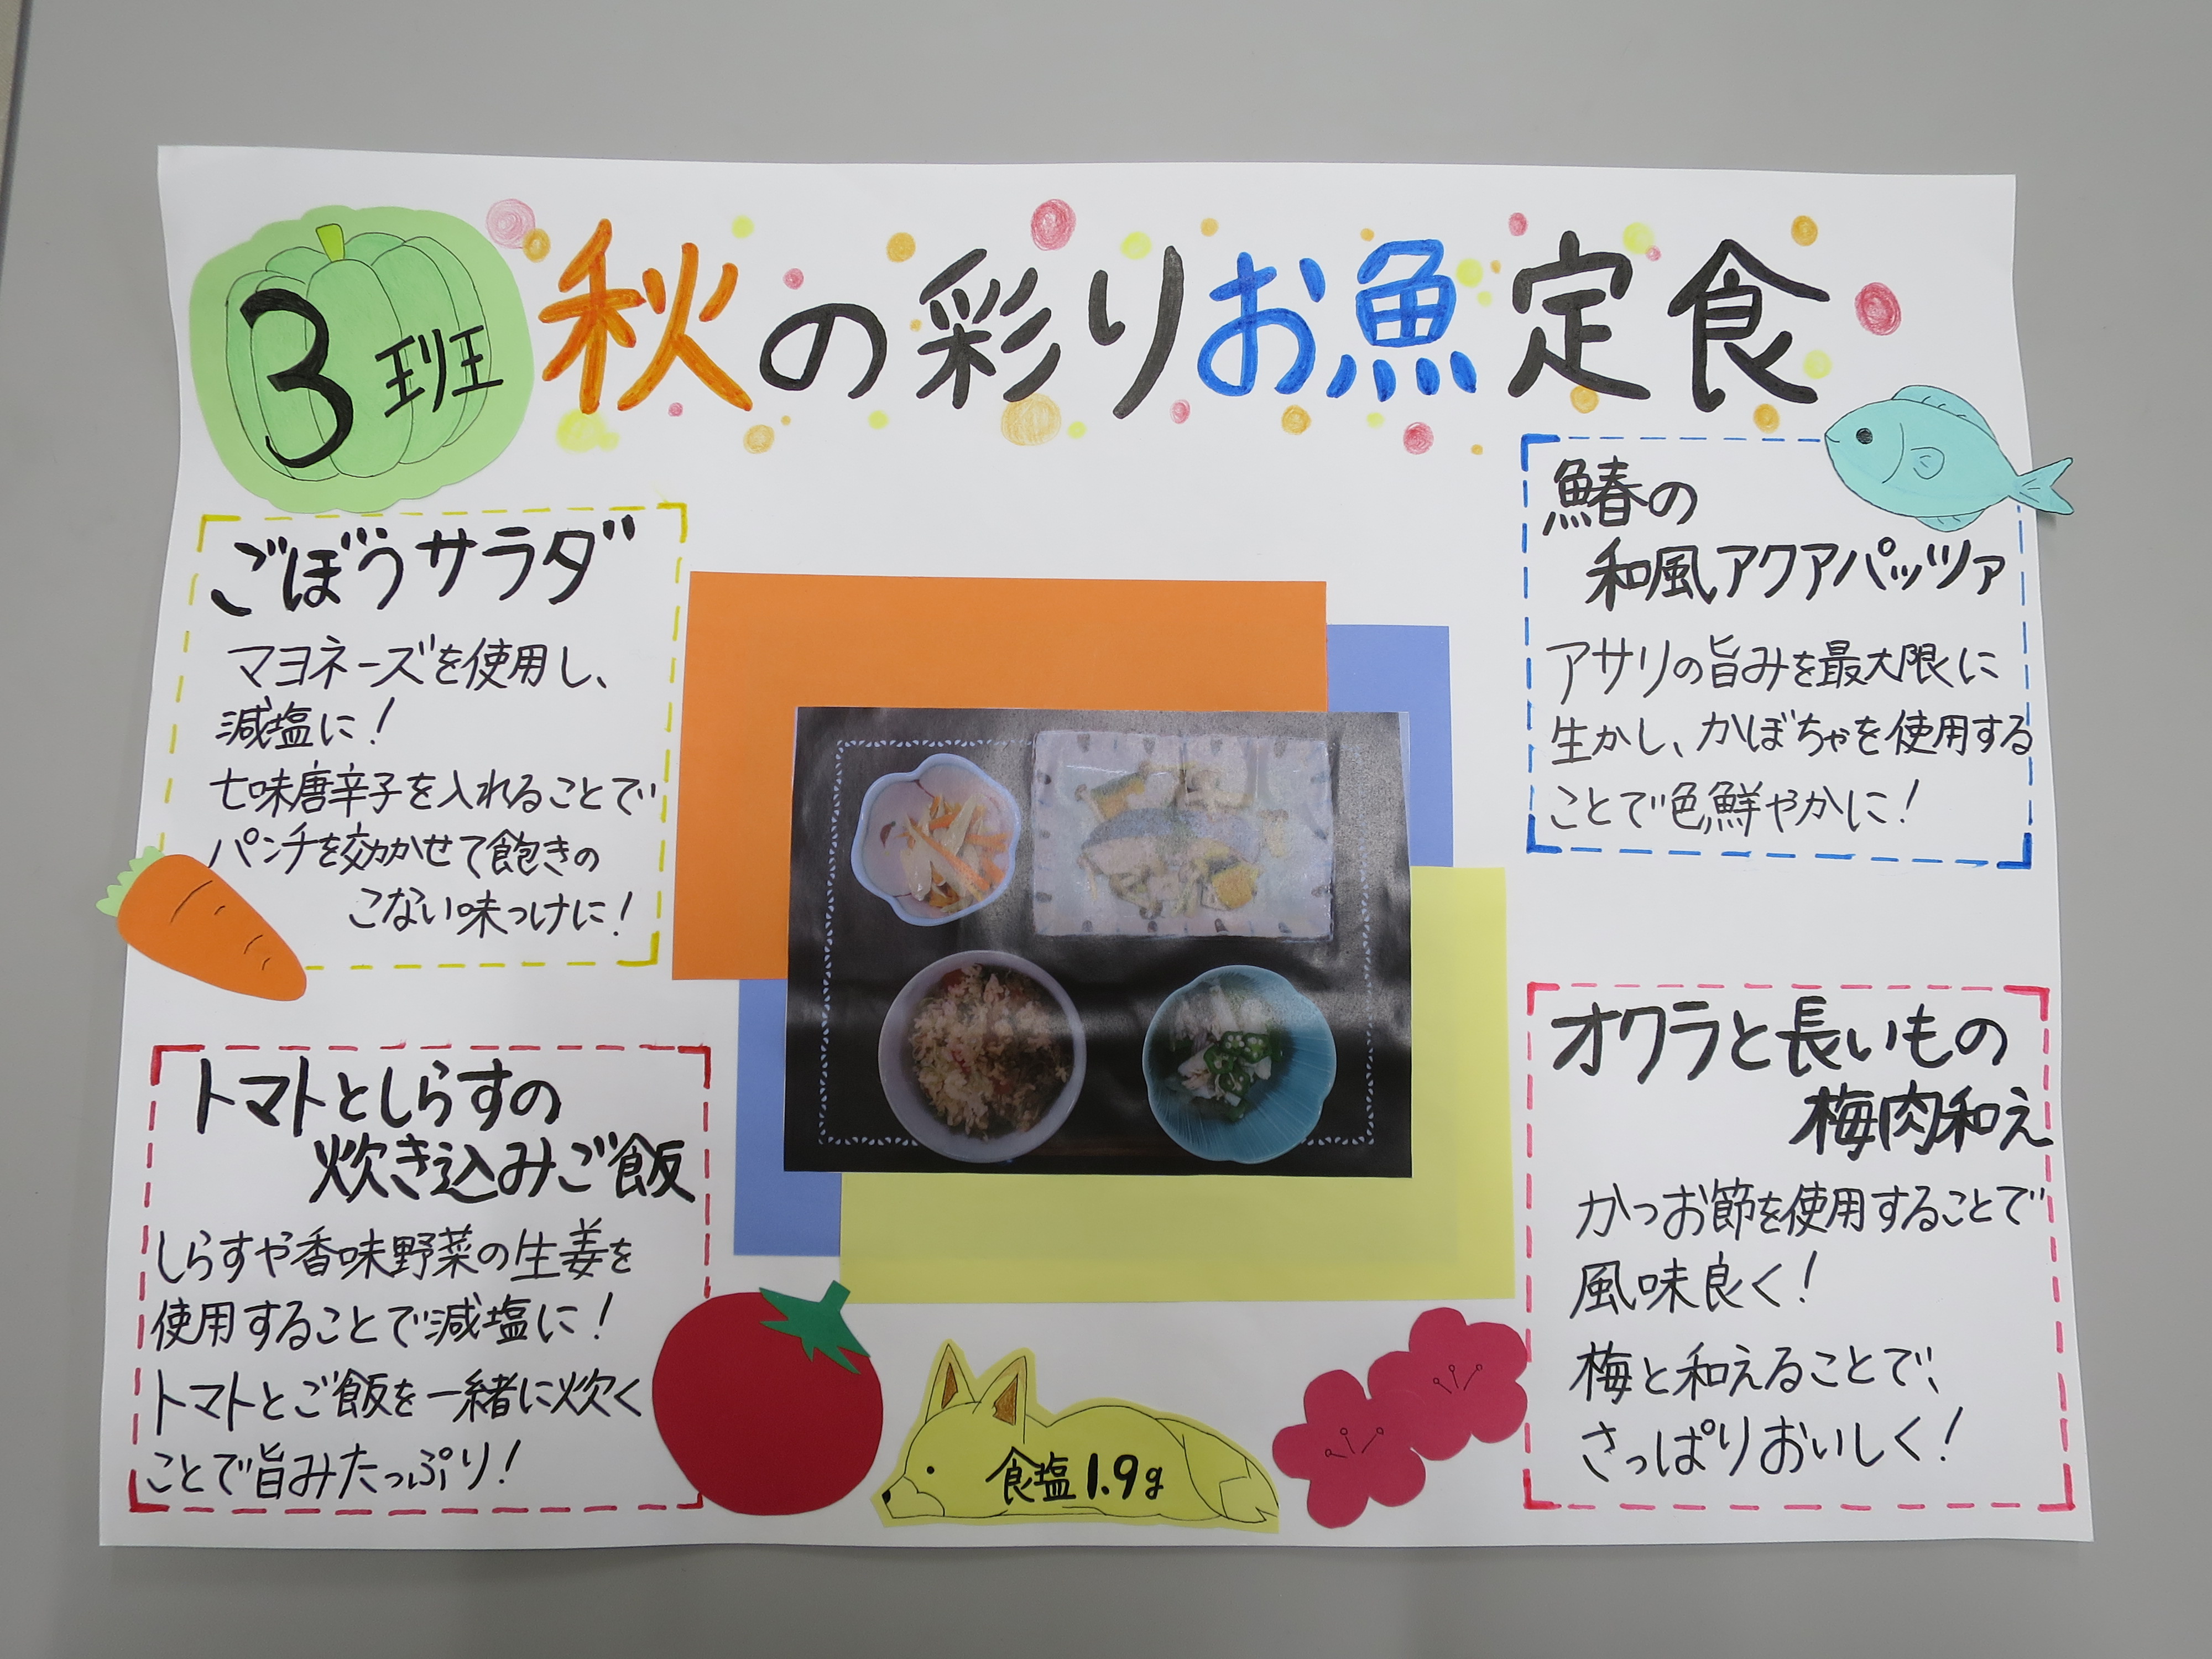 3班
秋の彩りお魚定食
ごぼうサラダ
マヨネーズを使用し、
減塩に!
七味唐辛子を入れることで
パンチを効かせて飽きの
こない味つけに!
鰆の
和風アクアパッツァ
アサリの旨みを最大限に
生かし、かぼちゃを使用する
ことで色鮮やかに!
トマトとしらすの
炊き込みご飯
しらすや香味野菜の生姜を
使用することで減塩に!
トマトとご飯を一緒に炊く
ことで旨みたっぷり!
オクラと長いもの
梅肉和え
かつお節を使用することで
風味良く!
梅と和えることで、
さっぱりおいしく!
食塩1.9g